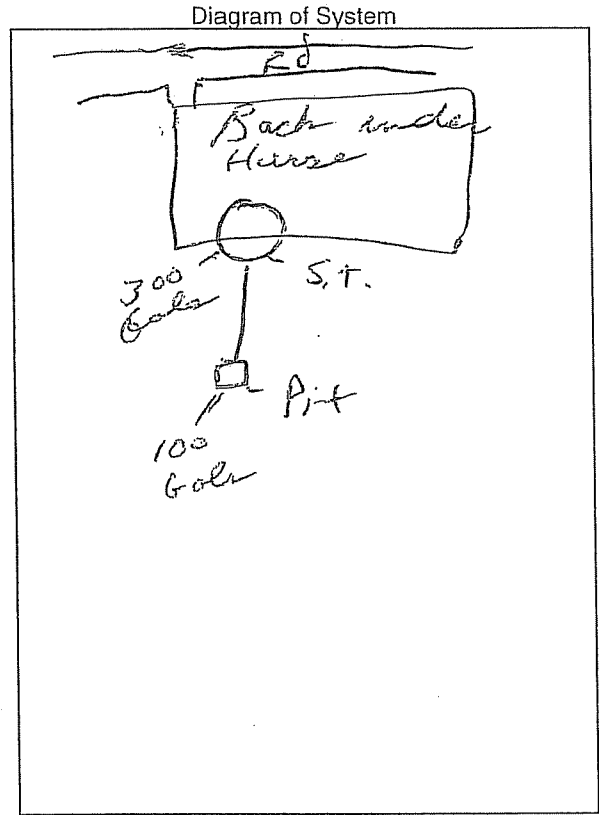 Diagram of System
Rd
Back under
House
300
Gals
S.T.
Pit
100
Gals